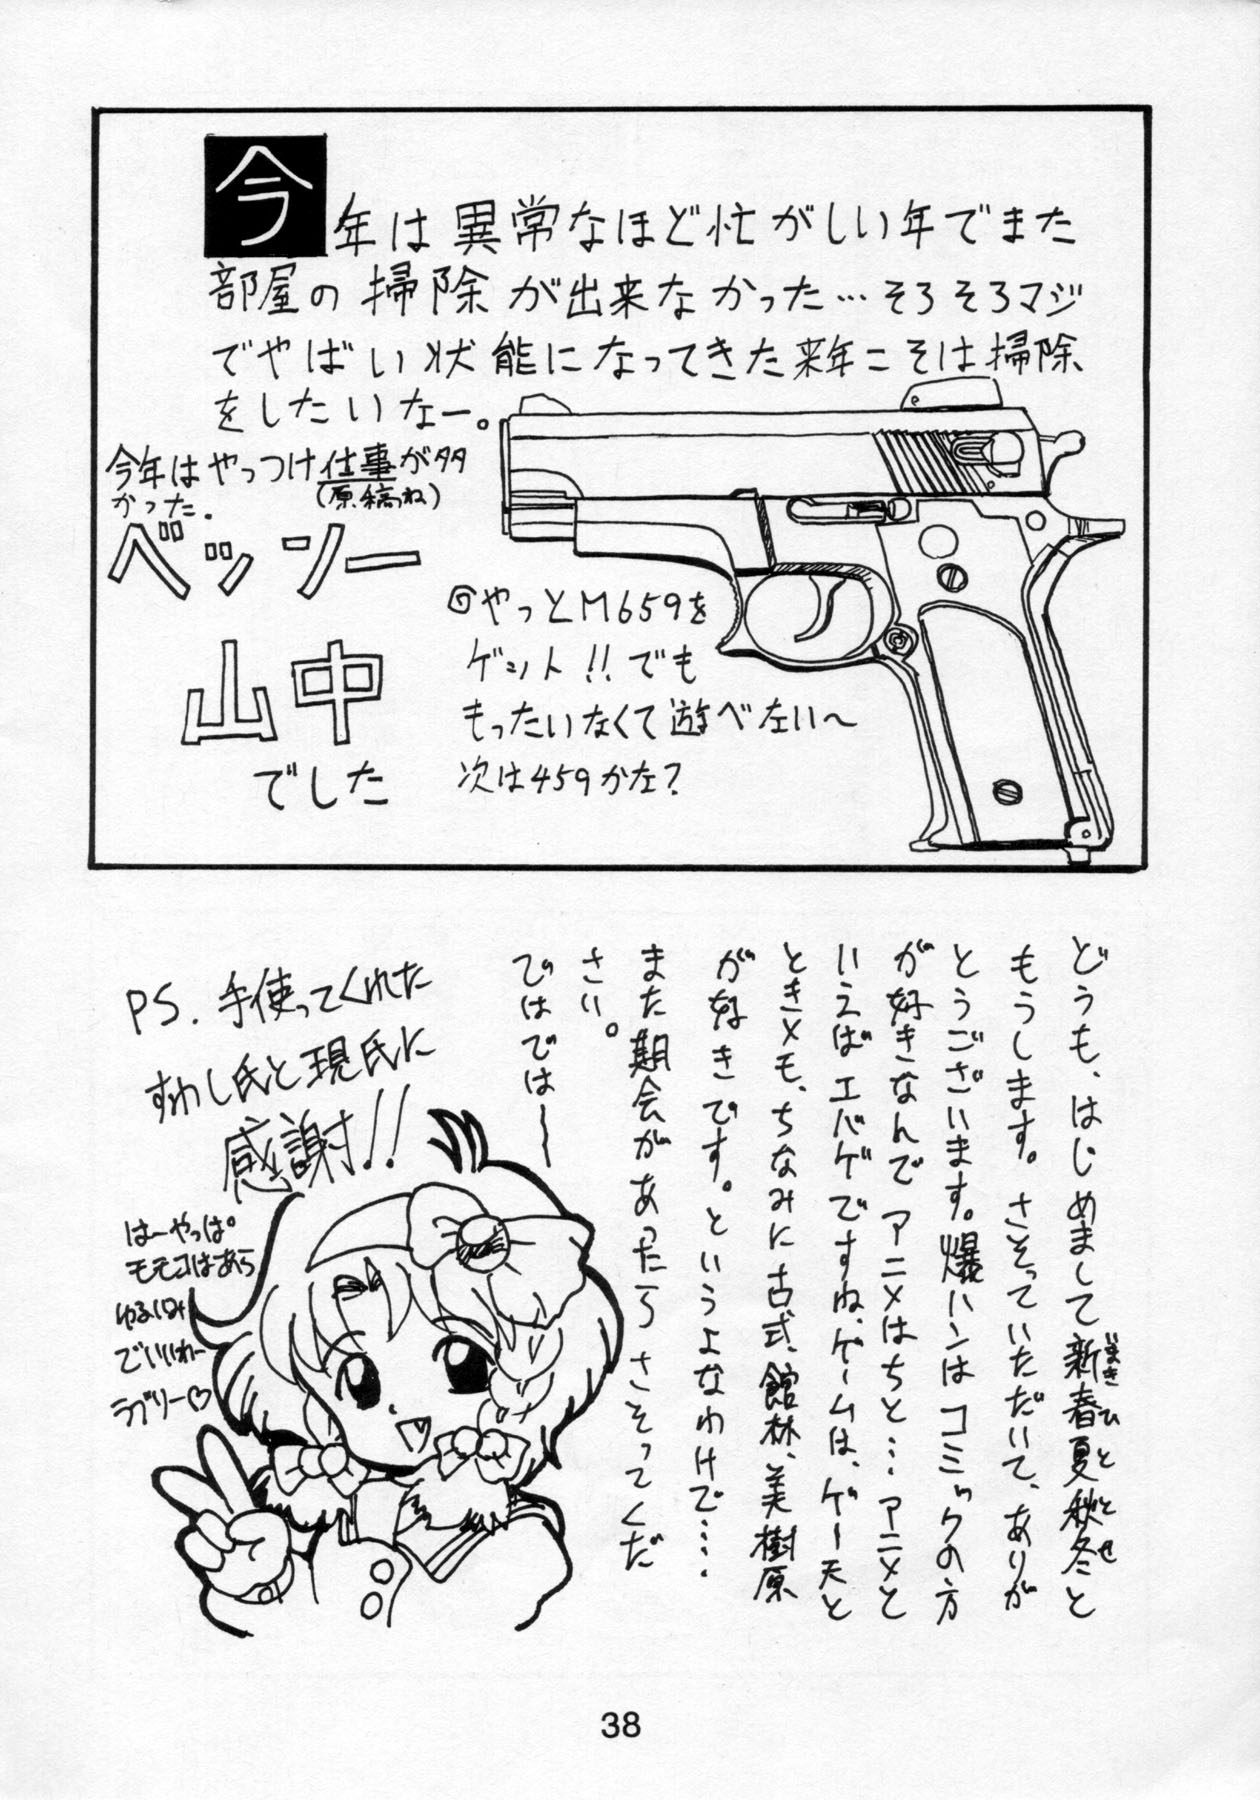 今年は異常なほど忙がしい年でまた
部屋の掃除が出来なかった…そろそろマジ
でやばい状態になってきた来年こそは掃除
をしたいなー。
今年はやっつけ仕事が多
(原稿ね)
かった.
ベッソー
山中
でした
◎やっとM659を
ゲット!!でも
もったいなくて遊べない〜
次は459かな?
どうも、はじめまして新春夏秋冬と
いまきひととせ
もうします。さそっていただいて、ありが
とうございます。爆ハンはコミックの方
が好きなんでアニメはちと…アニメと
いえばエバゲですね、ゲームは、ゲー天と
ときメモ、ちなみに古式、館林、美樹原
が好きです。というよなわけで….
また期会があったらさそってくだ
さい。
ではでは〜
PS.手使ってくれた
すわし氏と現氏に
感謝!!
はーやっぱ。
モモコはあら
ゆるイミ
でいいわー
ラブリー♡
38